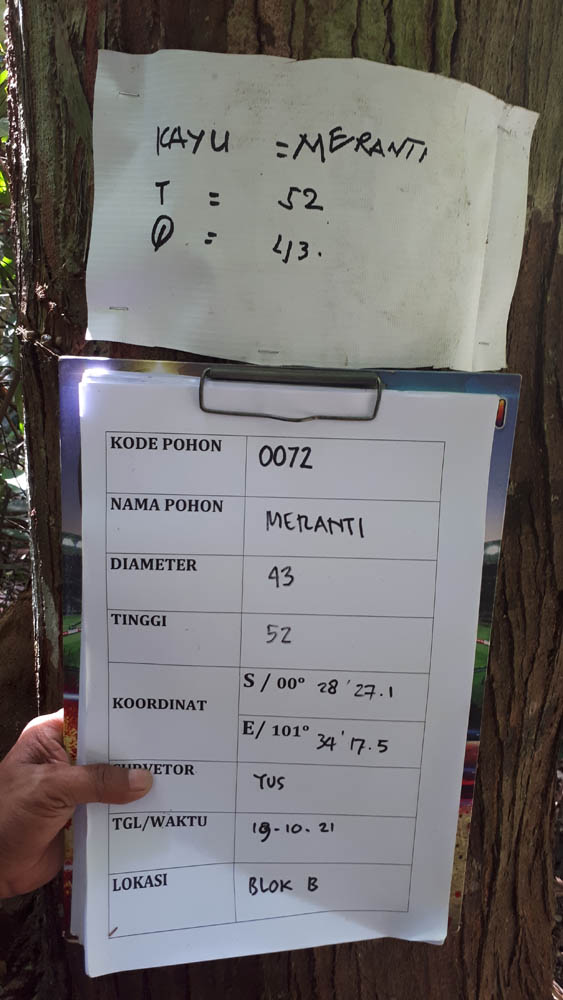 KAYU = MERANTI
T = 52
Ø = 43.
KODE POHON 0072
NAMA POHON MERANTI
DIAMETER 43
TINGGI 52
KOORDINAT
S / 00° 28'27.1
E/ 101° 34'17.5
SURVETOR YUS
TGL/WAKTU 19-10-21
LOKASI BLOK B